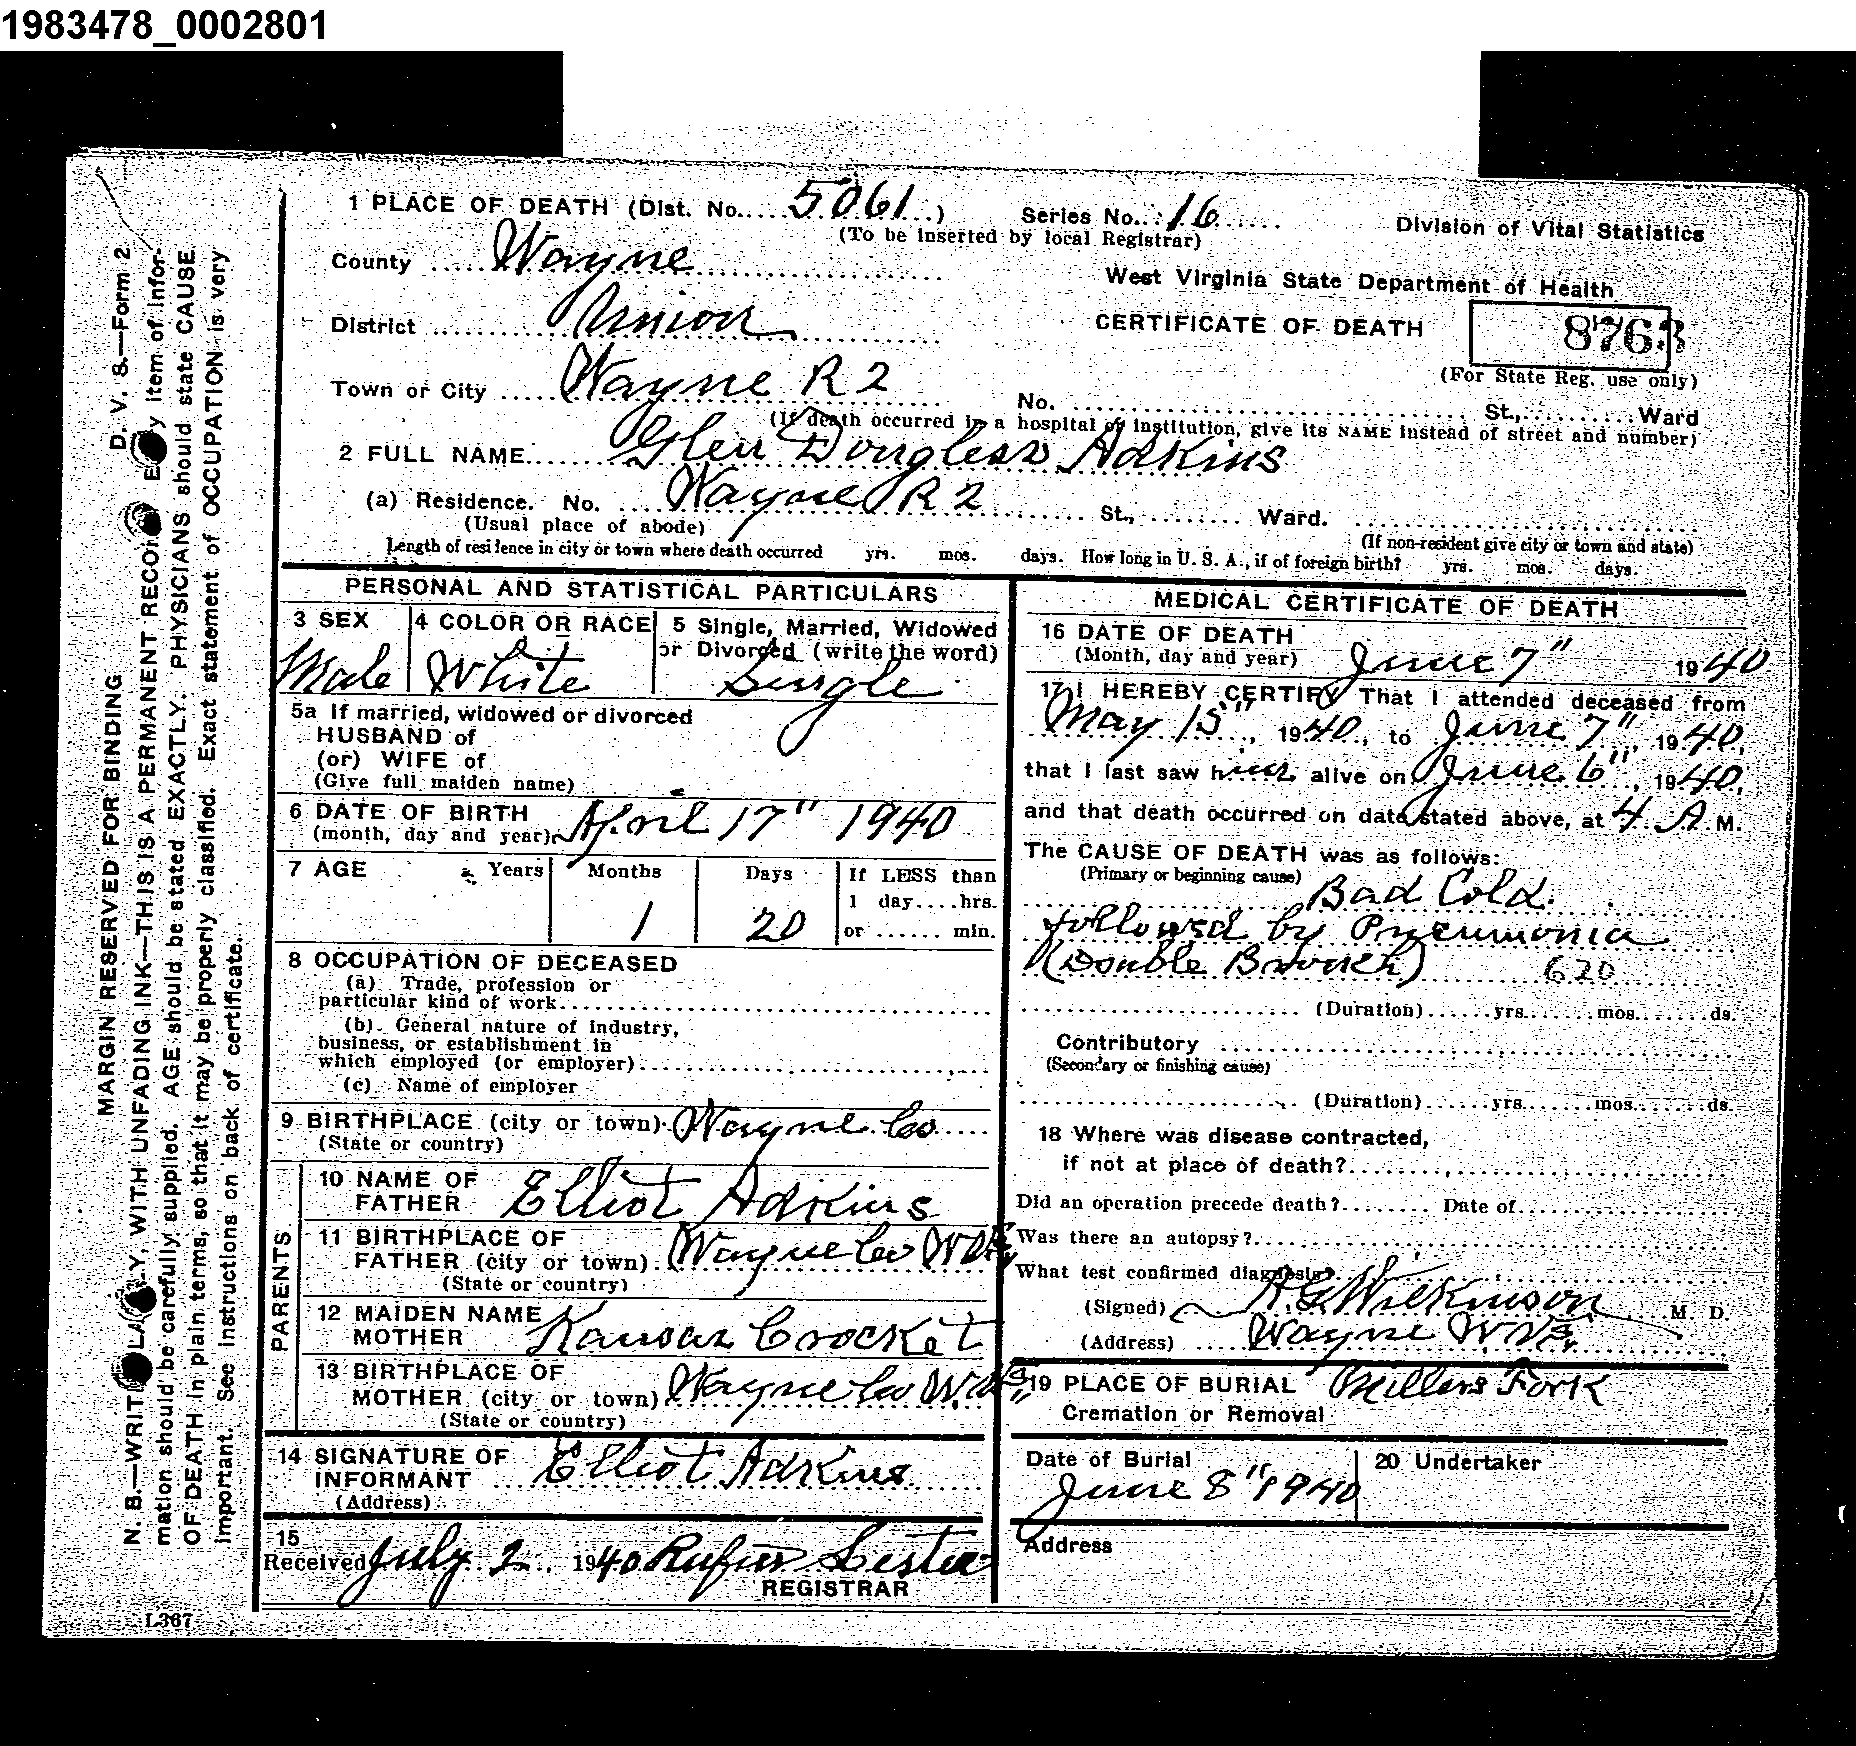 1983478_0002801
1 PLACE OF DEATH (Dist. No. 5061 ) Series No. 16
(To be inserted by local Registrar)
Division of Vital Statistics
County Wayne
West Virginia State Department of Health
District Union
CERTIFICATE OF DEATH 8763
(For State Reg. use only)
Town or City Wayne R 2
No. St., Ward
(If death occurred in a hospital or institution, give its NAME instead of street and number)
2 FULL NAME Glen Dougless Adkins
(a) Residence. No. Wayne R 2 St., Ward.
(Usual place of abode) (If non-resident give city or town and state)
Length of residence in city or town where death occurred yrs. mos. days. How long in U. S. A., if of foreign birth? yrs. mos. days.
PERSONAL AND STATISTICAL PARTICULARS
3 SEX 4 COLOR OR RACE 5 Single, Married, Widowed
or Divorced (write the word)
Male White Single
5a If married, widowed or divorced
HUSBAND of
(or) WIFE of
(Give full maiden name)
6 DATE OF BIRTH
(month, day and year) April 17" 1940
7 AGE Years Months Days If LESS than
1 day....hrs.
1 20 or ...... min.
8 OCCUPATION OF DECEASED
(a) Trade, profession or
particular kind of work
(b) General nature of industry,
business, or establishment in
which employed (or employer)
(c) Name of employer
9 BIRTHPLACE (city or town) Wayne Co
(State or country)
PARENTS
10 NAME OF
FATHER Elliot Adkins
11 BIRTHPLACE OF
FATHER (city or town) Wayne Co W Va
(State or country)
12 MAIDEN NAME
MOTHER Kansas Crocket
13 BIRTHPLACE OF
MOTHER (city or town) Wayne Co W. Va
(State or country)
14 SIGNATURE OF
INFORMANT Elliot Adkins
(Address)
15
Received July 2, 1940 Rufus Lester
REGISTRAR
MEDICAL CERTIFICATE OF DEATH
16 DATE OF DEATH
(Month, day and year) June 7" 1940
17 I HEREBY CERTIFY That I attended deceased from
May 15", 1940, to June 7", 1940,
that I last saw him alive on June 6", 1940,
and that death occurred on date stated above, at 4. A. M.
The CAUSE OF DEATH was as follows:
(Primary or beginning cause) Bad Cold.
followed by Pneumonia
(Double Bronch) 620
(Duration) yrs. mos. ds.
Contributory
(Secondary or finishing cause)
(Duration) yrs. mos. ds.
18 Where was disease contracted,
if not at place of death?
Did an operation precede death? Date of
Was there an autopsy?
What test confirmed diagnosis?
(Signed) H. G. Wilkinson M. D.
(Address) Wayne W Va.
19 PLACE OF BURIAL Millers Fork
Cremation or Removal
Date of Burial 20 Undertaker
June 8" 1940
Address
D. V. S.—Form 2
MARGIN RESERVED FOR BINDING
N. B.—WRITE PLAINLY, WITH UNFADING INK—THIS IS A PERMANENT RECORD. Every item of infor-
mation should be carefully supplied. AGE should be stated EXACTLY. PHYSICIANS should state CAUSE
OF DEATH in plain terms, so that it may be properly classified. Exact statement of OCCUPATION is very
important. See instructions on back of certificate.
L367